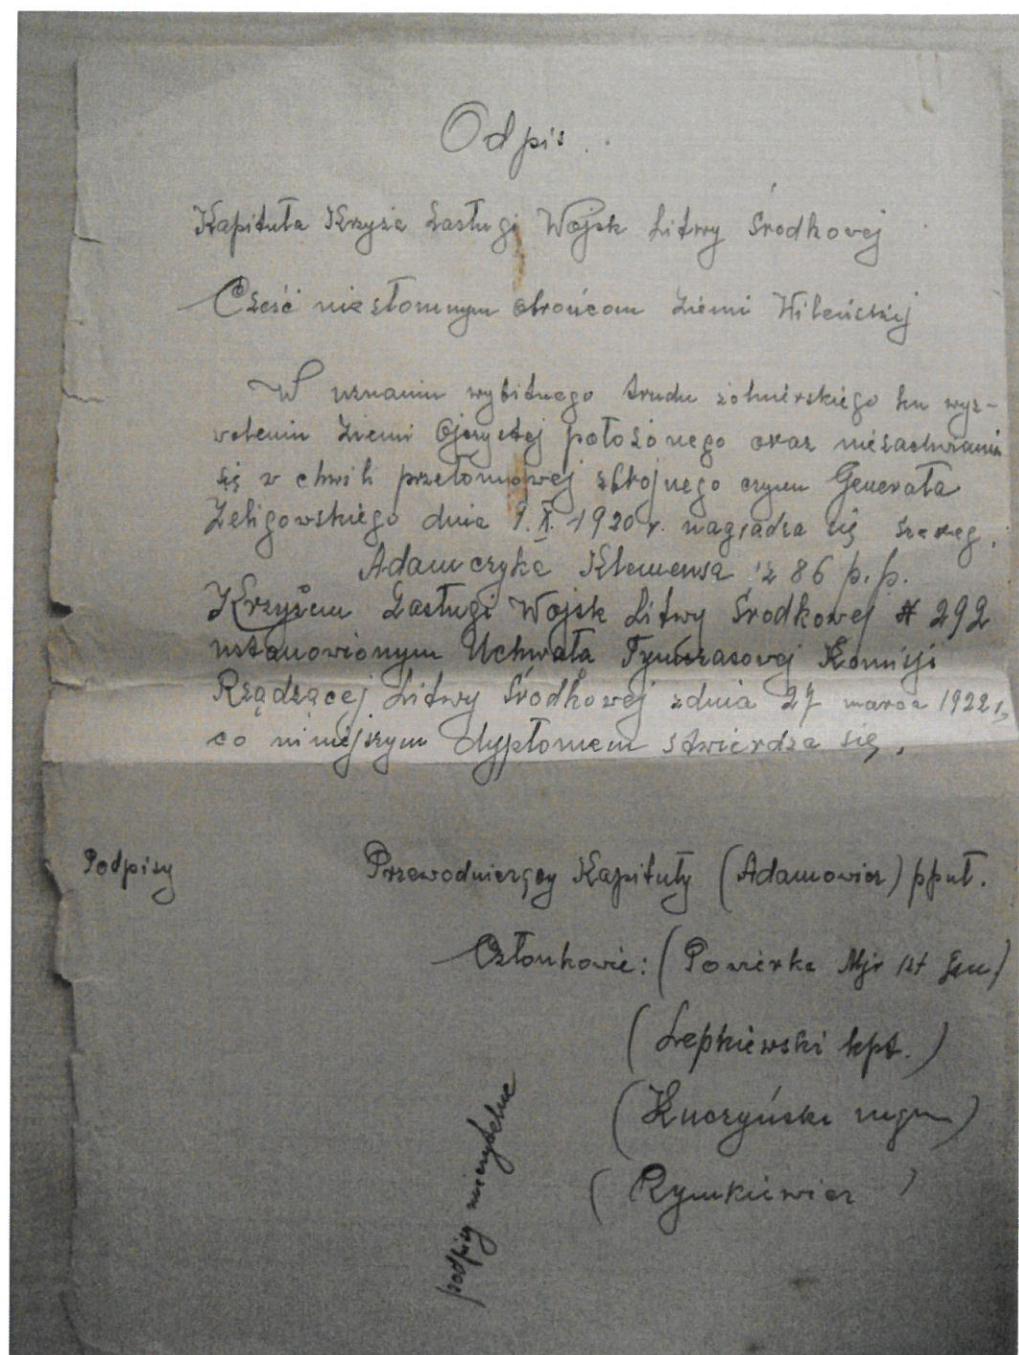 Odpis.
Kapituła Krzyża Zasługi Wojsk Litwy Środkowej
Cześć niezłomnym obrońcom Ziemi Wileńskiej
W uznaniu wybitnego trudu żołnierskiego ku wyz-
woleniu Ziemi Ojczystej położonego oraz niezachwiania
się w chwili przełomowej zbrojnego czynu Generała
Żeligowskiego dnia 9.X.1920 r. nagradza się szereg.
Adamczyka Klemensa z 86 p.p.
Krzyżem Zasługi Wojsk Litwy Środkowej # 292
ustanowionym Uchwałą Tymczasowej Komisji
Rządzącej Litwy Środkowej z dnia 27 marca 1922 r.
co niniejszym dyplomem stwierdza się.
Podpisy
Przewodniczący Kapituły (Adamowicz) ppuł.
Członkowie: (Powierka Mjr szt Gen)
(Lepkiewski kpt.)
(Kuczyński)
(Rymkiewicz)
podpisy nieczytelne